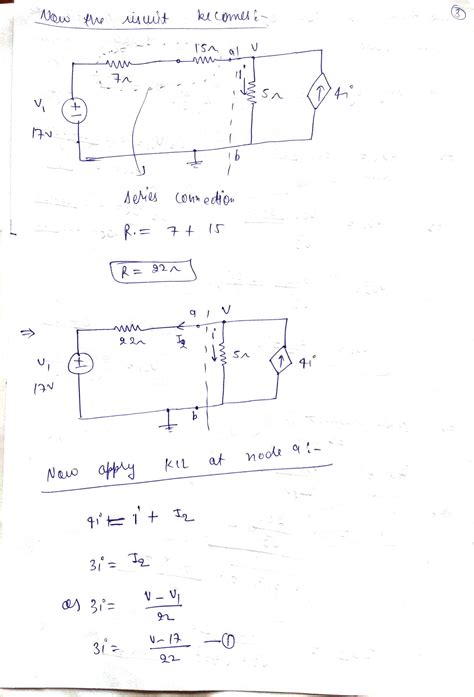 Now the circuit becomes:-
3
15Ω a V
7Ω
i
5Ω
4i
V1
17V
b
series connection
R = 7 + 15
R = 22Ω
⇒
a V
22Ω I2 i
5Ω
4i
V1
17V
b
Now apply KCL at node a:-
4i = i + I2
3i = I2
or 3i = (V - V1)/22
3i = (V - 17)/22 —①